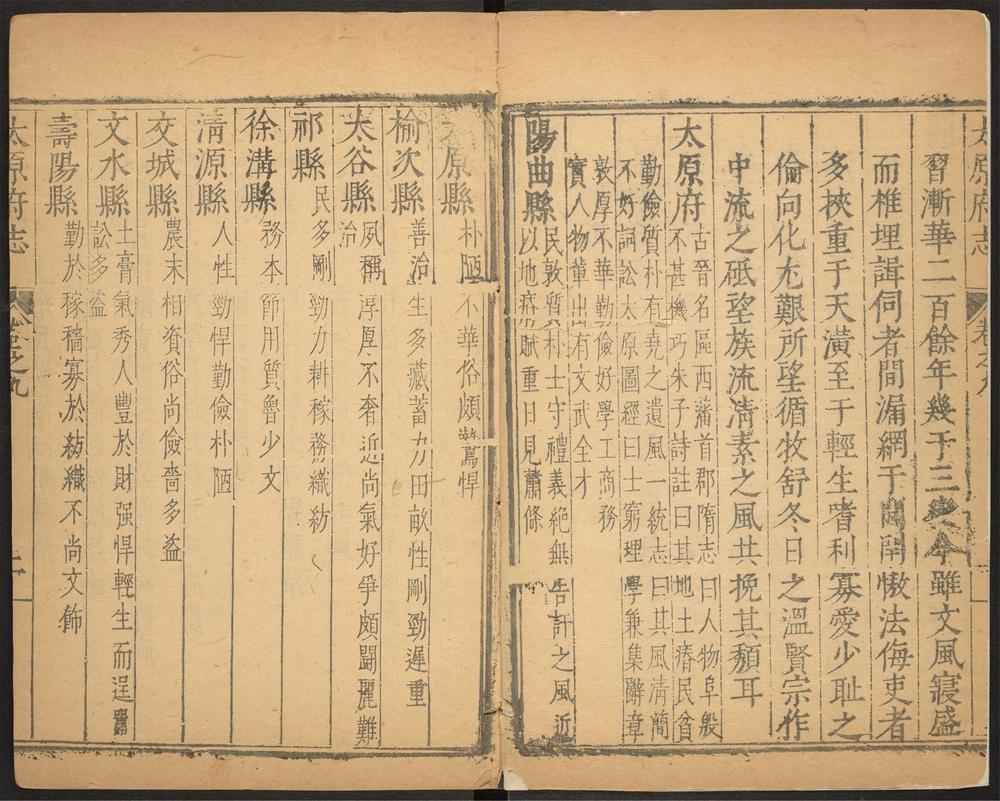 太原府志 卷之九
習漸華二百餘年幾于三變今雖文風寢盛
而椎埋諿伺者間漏網于閭閈慠法侮吏者
多挾重于天潢至于輕生嗜利寡愛少耻之
倫向化尤艱所望循牧舒冬日之溫賢宗作
中流之砥望族流清素之風共挽其頹耳
太原府
古晉名區西藩首郡隋志曰人物阜殷
不甚機巧朱子詩註曰其地土瘠民貧
勤儉質朴有堯之遺風一統志曰其風清簡
不好詞訟太原圖經曰士窮理學兼集辭章
敦厚不華勤儉好學工商務
實人物輩出有文武全才
陽曲縣
民敦質朴士守禮義絕無告訐之風近
以地瘠賦重日見蕭條
原縣
朴陋不華俗頗驚悍
榆次縣
善治生多藏蓄力田畝性剛勁遲重
太谷縣
夙稱淳厚不奢近尚氣好爭頗鬭麗難
治
祁縣
民多剛勁力耕稼務織紡
徐溝縣
務本節用質魯少文
清源縣
人性勁悍勤儉朴陋
交城縣
農末相資俗尚儉嗇多盗
文水縣
土膏氣秀人豐於財强悍輕生而逞嚚
訟多盗
壽陽縣
勤於稼穡寡於紡織不尚文飾
太原府志 卷之九